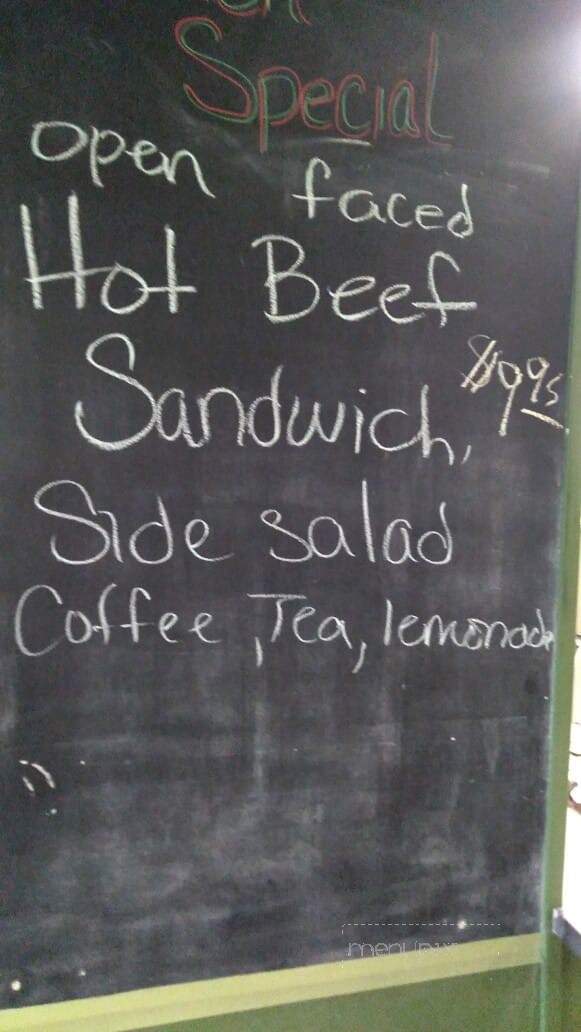 Special
open faced
Hot Beef
Sandwich,
$9.95
Side salad
Coffee, Tea, lemonade